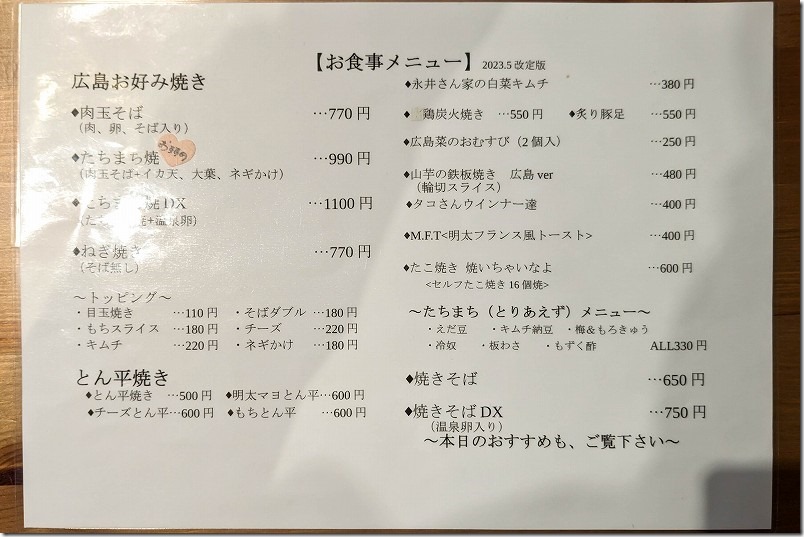 【お食事メニュー】 2023.5 改定版
広島お好み焼き
♦肉玉そば …770 円
（肉、卵、そば入り）
♦たちまち焼 …990 円
お踊め
（肉玉そば+イカ天、大葉、ネギかけ）
♦たちまち焼 DX …1100 円
（たちまち焼+温泉卵）
♦ねぎ焼き …770 円
（そば無し）
～トッピング～
・目玉焼き …110 円 ・そばダブル …180 円
・もちスライス …180 円 ・チーズ …220 円
・キムチ …220 円 ・ネギかけ …180 円
とん平焼き
♦とん平焼き …500 円 ♦明太マヨとん平…600 円
♦チーズとん平…600 円 ♦もちとん平 …600 円
♦永井さん家の白菜キムチ …380 円
♦ 鶏炭火焼き …550 円 ♦炙り豚足 …550 円
♦広島菜のおむすび（2 個入） …250 円
♦山芋の鉄板焼き 広島 ver …480 円
（輪切スライス）
♦タコさんウインナー達 …400 円
♦M.F.T<明太フランス風トースト> …400 円
♦たこ焼き 焼いちゃいなよ …600 円
<セルフたこ焼き 16 個焼>
～たちまち（とりあえず）メニュー～
・えだ豆 ・キムチ納豆 ・梅＆もろきゅう
・冷奴 ・板わさ ・もずく酢 ALL330 円
♦焼きそば …650 円
♦焼きそば DX …750 円
（温泉卵入り）
～本日のおすすめも、ご覧下さい～